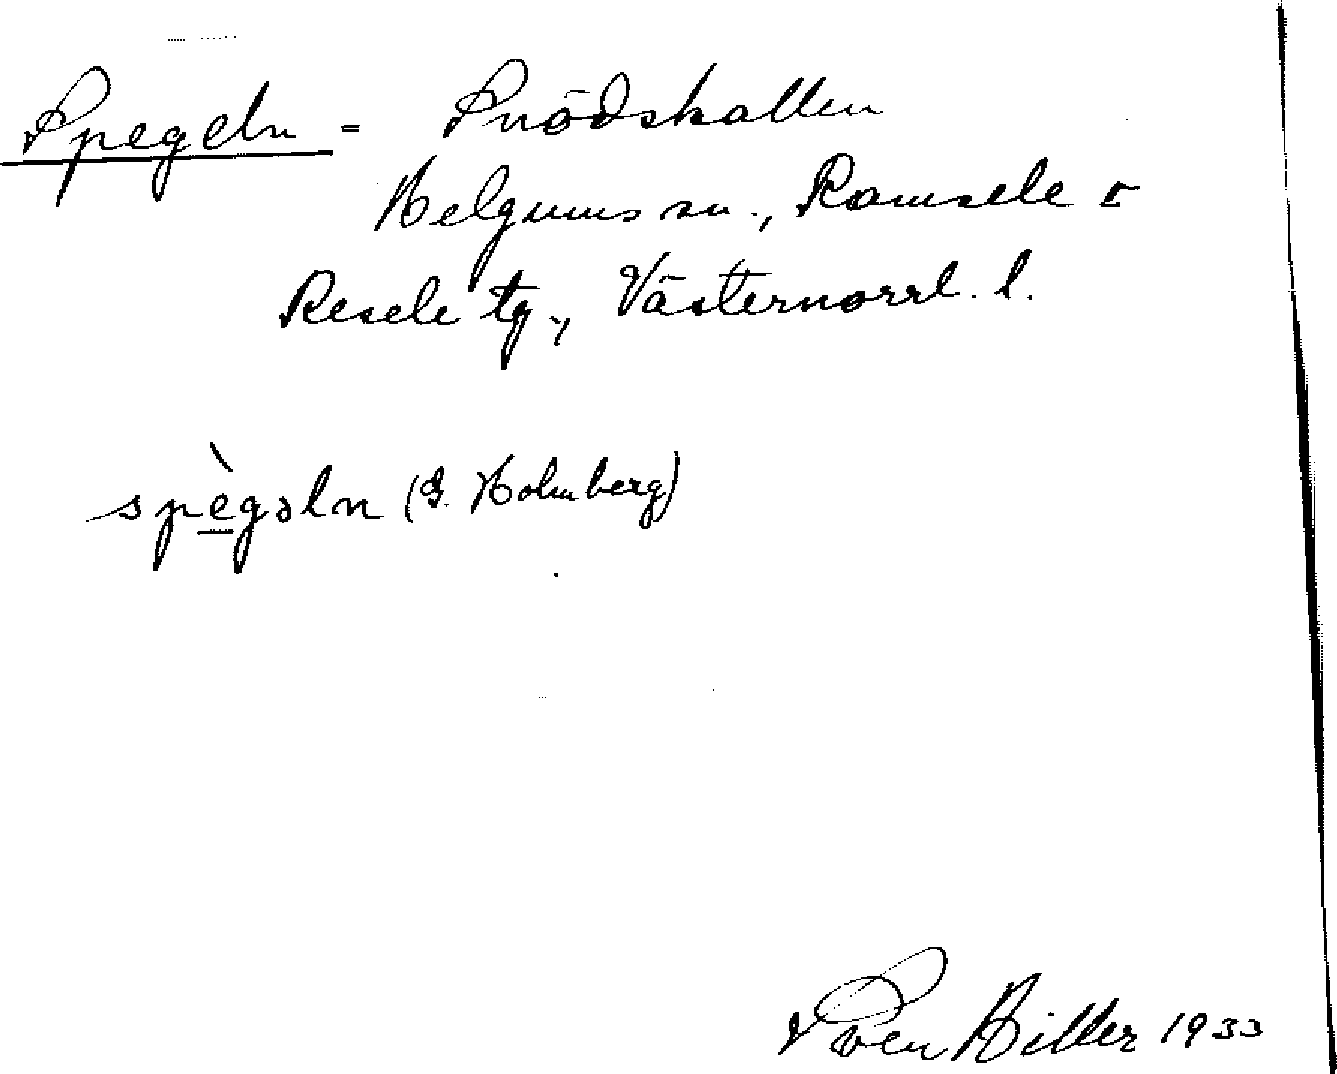 Spegeln = Snödskallen
Helgums sn., Ramsele o
Resele tg., Västernorrl. l.
spègəln (G. Holmberg)
Sven Hiller 1933